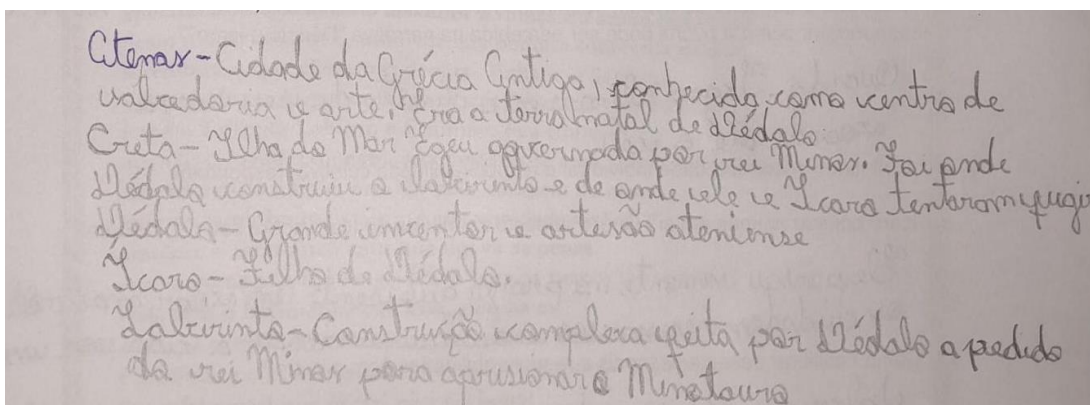 Atenas - Cidade da Grécia Antiga, conhecida como centro de
sabedoria e arte. Era a terra natal de Dédalo.
Creta - Ilha do Mar Egeu governada por rei Minos. Foi onde
Dédalo construiu o labirinto e de onde ele e Ícaro tentaram fugir
Dédalo - Grande inventor e artesão ateniense
Ícaro - Filho de Dédalo.
Labirinto - Construção complexa feita por Dédalo a pedido
do rei Minos para aprisionar o Minotauro